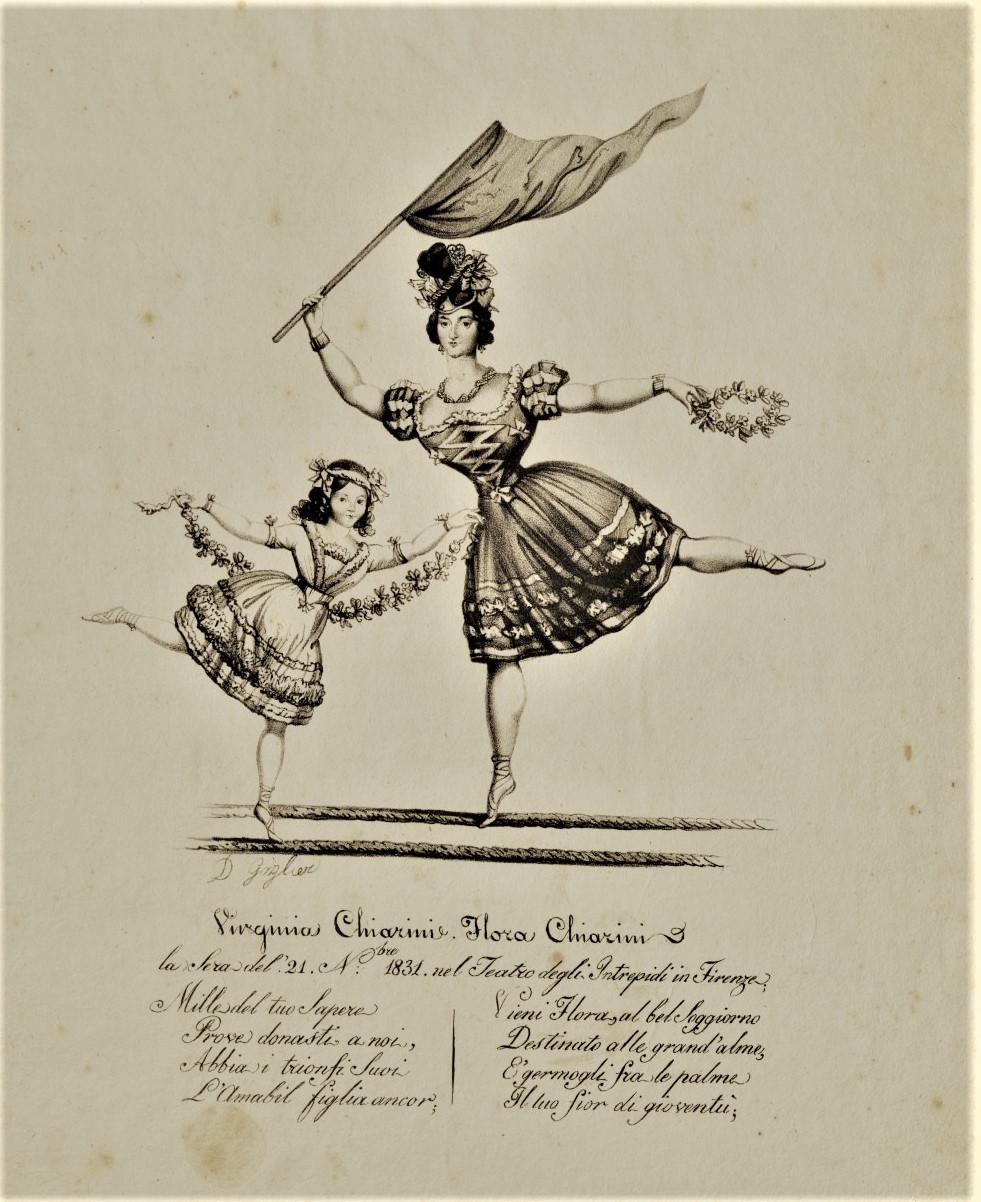 D Giglier
Virginia Chiarini e Flora Chiarini
la Sera del' 21. N.bre 1831. nel Teatro degli Intrepidi in Firenze;
Mille del tuo Sapere
Prove donasti a noi,
Abbia i trionfi Suoi
L'Amabil figlia ancor;
Vieni Flora, al bel Soggiorno
Destinato alle grand'alme;
E' germogli fra le palme
Il tuo fior di gioventù;